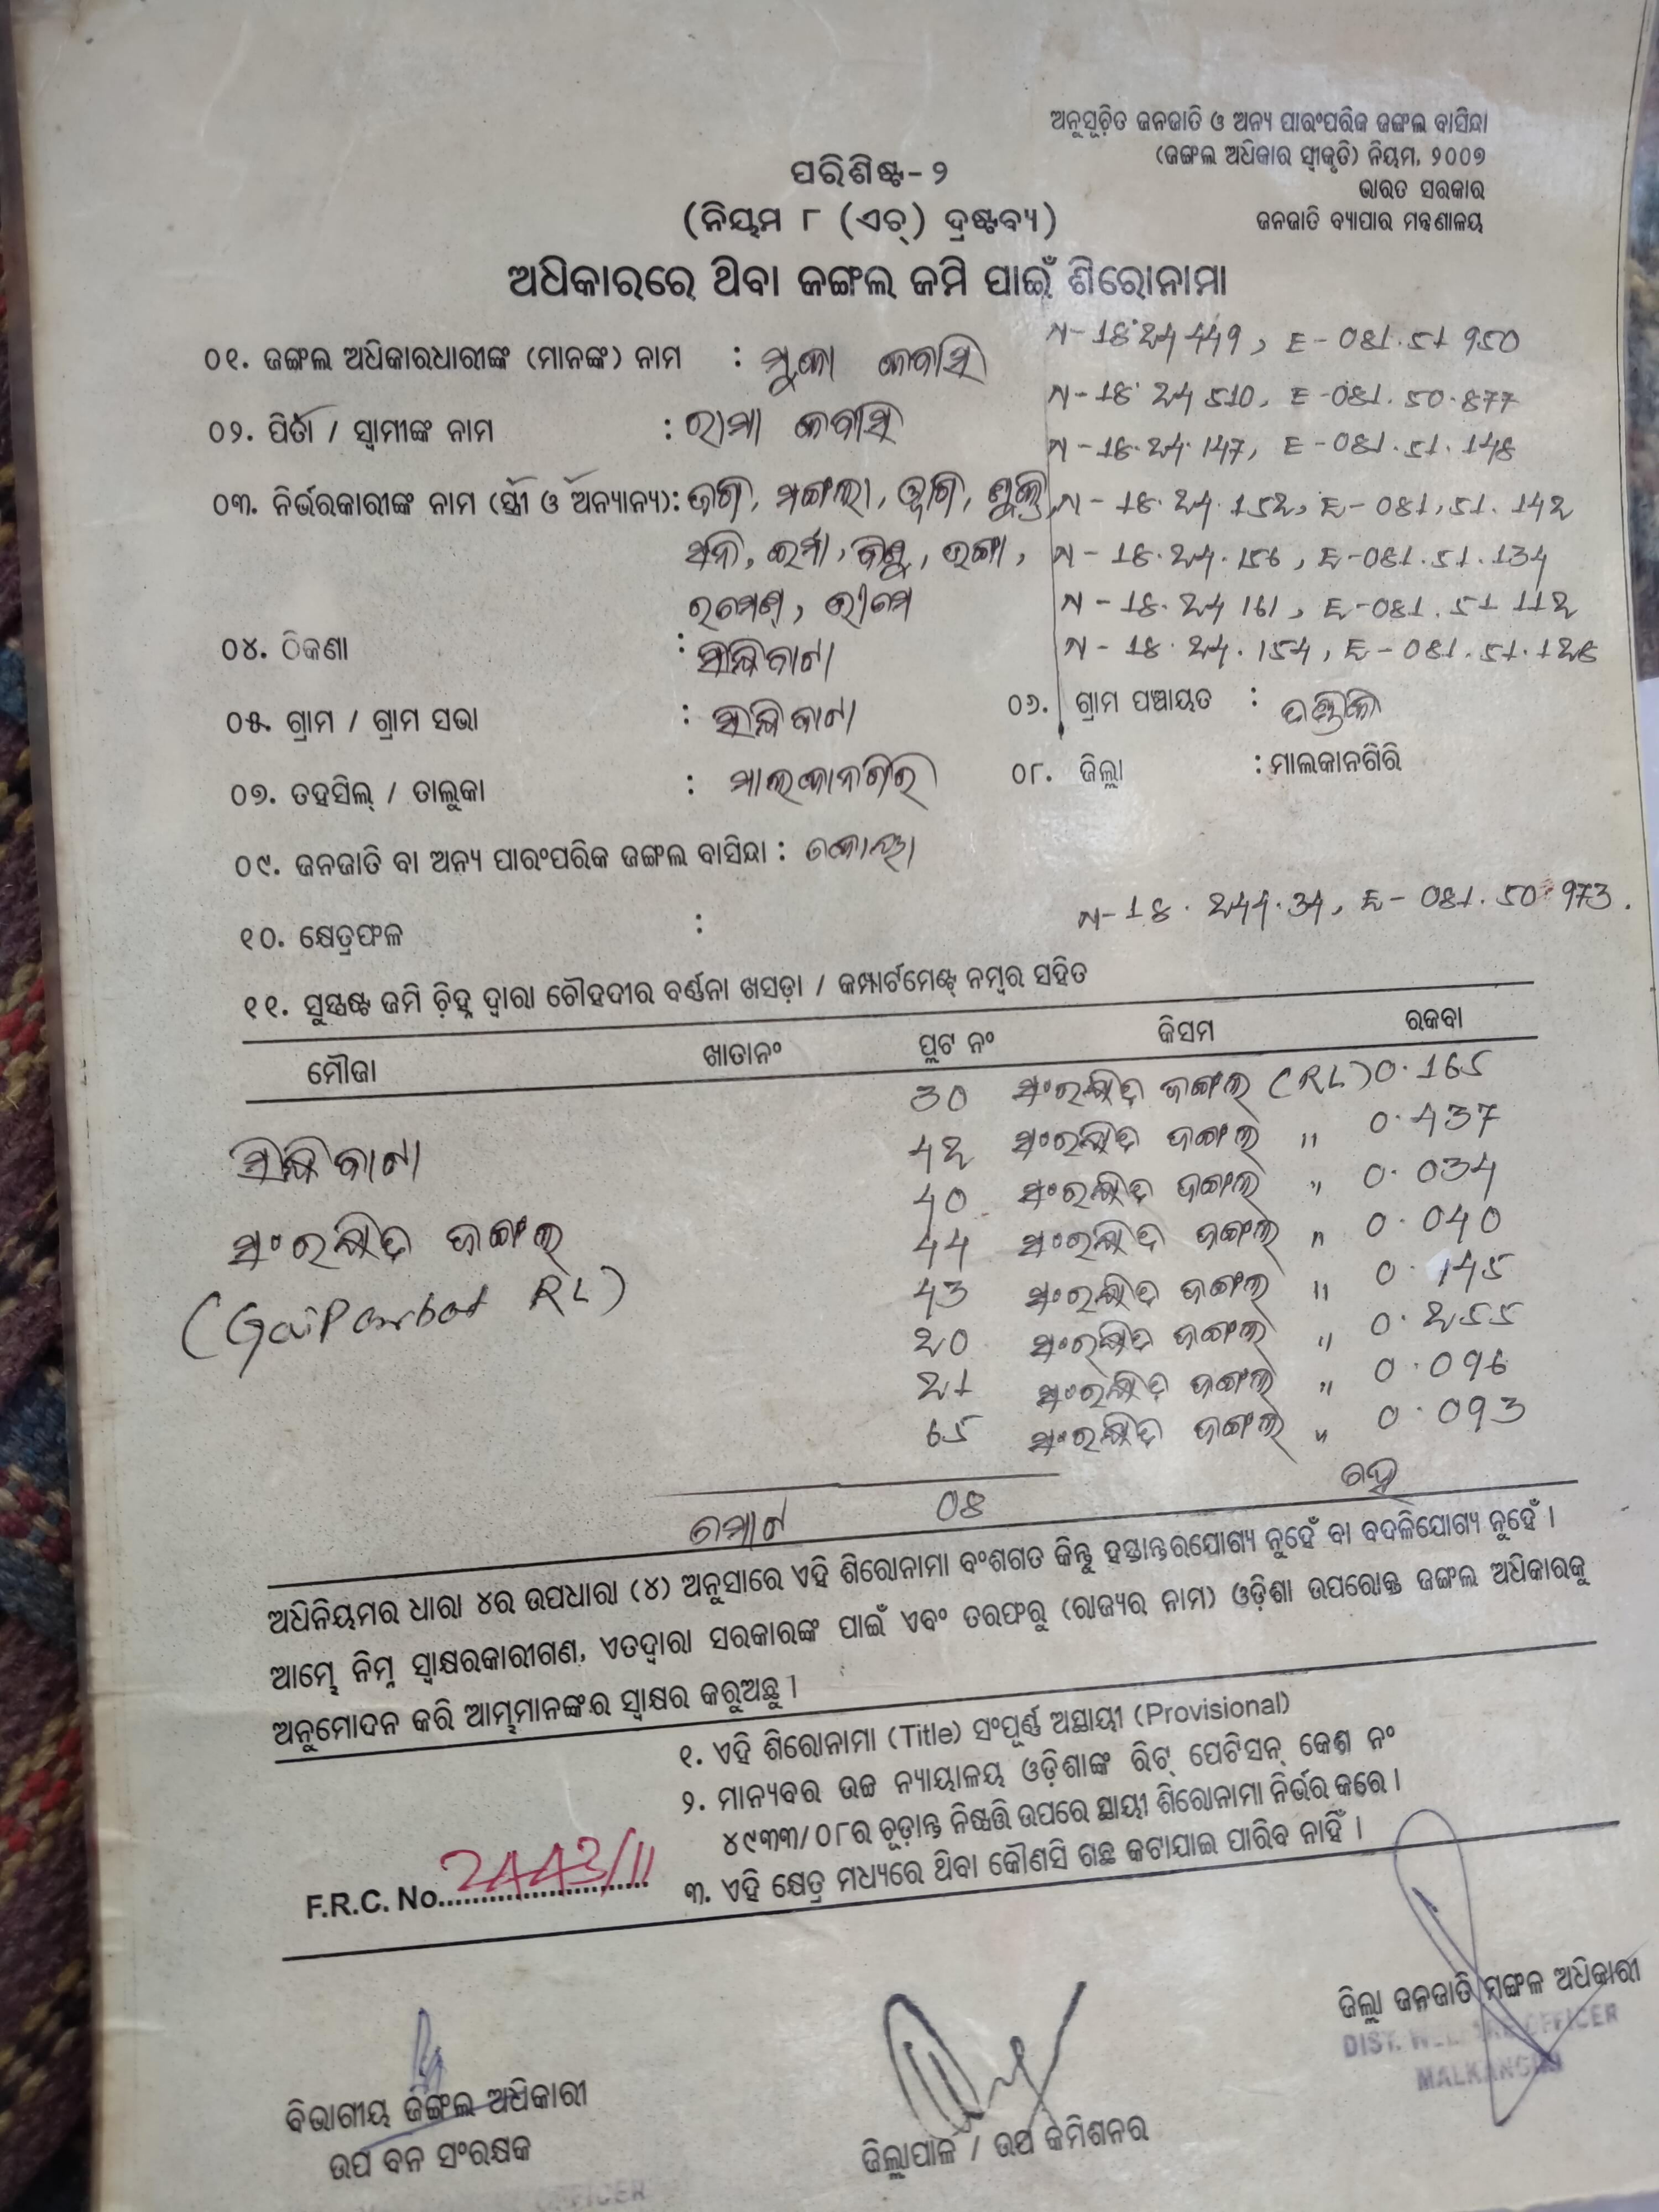 ଅନୁସୂଚିତ ଜନଜାତି ଓ ଅନ୍ୟ ପାରଂପରିକ ଜଙ୍ଗଲ ବାସିନ୍ଦା
(ଜଙ୍ଗଲ ଅଧିକାର ସ୍ୱୀକୃତି) ନିୟମ, ୨୦୦୭
ଭାରତ ସରକାର
ଜନଜାତି ବ୍ୟାପାର ମନ୍ତ୍ରଣାଳୟ
ପରିଶିଷ୍ଟ-୨
(ନିୟମ ୮ (ଏଚ୍) ଦ୍ରଷ୍ଟବ୍ୟ)
ଅଧିକାରରେ ଥିବା ଜଙ୍ଗଲ ଜମି ପାଇଁ ଶିରୋନାମା
N-18.24 449, E-081.51 950
୦୧. ଜଙ୍ଗଲ ଅଧିକାରଧାରୀଙ୍କ (ମାନଙ୍କ) ନାମ : ମୁକା କେବାସି
N-18 24 510, E-081.50.877
୦୨. ପିତା / ସ୍ୱାମୀଙ୍କ ନାମ : ରାମା କେବାସି
N-18.24.147, E-081.51.148
୦୩. ନିର୍ଭରକାରୀଙ୍କ ନାମ (ସ୍ତ୍ରୀ ଓ ଅନ୍ୟାନ୍ୟ): ଜଗି, ମଙ୍ଗଲା,
N-18.24.152, E-081.51.142
N-18.24.156, E-081.51.134
N-18.24 161, E-081.51 112
୦୪. ଠିକଣା :
N-18.24.154, E-081.51.128
୦୫. ଗ୍ରାମ / ଗ୍ରାମ ସଭା : ୦୬. ଗ୍ରାମ ପଞ୍ଚାୟତ :
୦୭. ତହସିଲ୍ / ତାଲୁକା : ମାଲକାନଗିରି ୦୮. ଜିଲ୍ଲା : ମାଲକାନଗିରି
୦୯. ଜନଜାତି ବା ଅନ୍ୟ ପାରଂପରିକ ଜଙ୍ଗଲ ବାସିନ୍ଦା : କୋୟା
୧୦. କ୍ଷେତ୍ରଫଳ : N-18.244.34, E-081.50.973.
୧୧. ସୁସ୍ପଷ୍ଟ ଜମି ଚିହ୍ନ ଦ୍ୱାରା ଚୌହଦୀର ବର୍ଣ୍ଣନା ଖସଡ଼ା / କମ୍ପାର୍ଟମେଣ୍ଟ୍ ନମ୍ବର ସହିତ
ମୌଜା ଖାତାନଂ ପ୍ଲଟ ନଂ କିସମ ରକବା
30 ସଂରକ୍ଷିତ ଜଙ୍ଗଲ (RL) 0.165
42 ସଂରକ୍ଷିତ ଜଙ୍ଗଲ " 0.437
40 ସଂରକ୍ଷିତ ଜଙ୍ଗଲ " 0.034
ସଂରକ୍ଷିତ ଜଙ୍ଗଲ 44 ସଂରକ୍ଷିତ ଜଙ୍ଗଲ " 0.040
(GaiParbat RL) 43 ସଂରକ୍ଷିତ ଜଙ୍ଗଲ " 0.145
20 ସଂରକ୍ଷିତ ଜଙ୍ଗଲ " 0.255
21 ସଂରକ୍ଷିତ ଜଙ୍ଗଲ " 0.096
65 ସଂରକ୍ଷିତ ଜଙ୍ଗଲ " 0.093
ମୋଟ 08
ଅଧିନିୟମର ଧାରା ୪ର ଉପଧାରା (୪) ଅନୁସାରେ ଏହି ଶିରୋନାମା ବଂଶଗତ କିନ୍ତୁ ହସ୍ତାନ୍ତରଯୋଗ୍ୟ ନୁହେଁ ବା ବଦଳିଯୋଗ୍ୟ ନୁହେଁ ।
ଆମ୍ଭେ ନିମ୍ନ ସ୍ୱାକ୍ଷରକାରୀଗଣ, ଏତଦ୍ୱାରା ସରକାରଙ୍କ ପାଇଁ ଏବଂ ତରଫରୁ (ରାଜ୍ୟର ନାମ) ଓଡ଼ିଶା ଉପରୋକ୍ତ ଜଙ୍ଗଲ ଅଧିକାରକୁ
ଅନୁମୋଦନ କରି ଆମ୍ଭମାନଙ୍କର ସ୍ୱାକ୍ଷର କରୁଅଛୁ ।
୧. ଏହି ଶିରୋନାମା (Title) ସଂପୂର୍ଣ୍ଣ ଅସ୍ଥାୟୀ (Provisional)
୨. ମାନ୍ୟବର ଉଚ୍ଚ ନ୍ୟାୟାଳୟ ଓଡ଼ିଶାଙ୍କ ରିଟ୍ ପେଟିସନ୍ କେଶ ନଂ
୪୯୩୩/୦୮ର ଚୂଡ଼ାନ୍ତ ନିଷ୍ପତ୍ତି ଉପରେ ସ୍ଥାୟୀ ଶିରୋନାମା ନିର୍ଭର କରେ ।
୩. ଏହି କ୍ଷେତ୍ର ମଧ୍ୟରେ ଥିବା କୌଣସି ଗଛ କଟାଯାଇ ପାରିବ ନାହିଁ ।
F.R.C. No. 2443/11
ଜିଲ୍ଲା ଜନଜାତି ମଙ୍ଗଳ ଅଧିକାରୀ
DIST. WELFARE OFFICER
MALKANGIRI
ବିଭାଗୀୟ ଜଙ୍ଗଲ ଅଧିକାରୀ
ଉପ ବନ ସଂରକ୍ଷକ
ଜିଲ୍ଲାପାଳ / ଉପ କମିଶନର